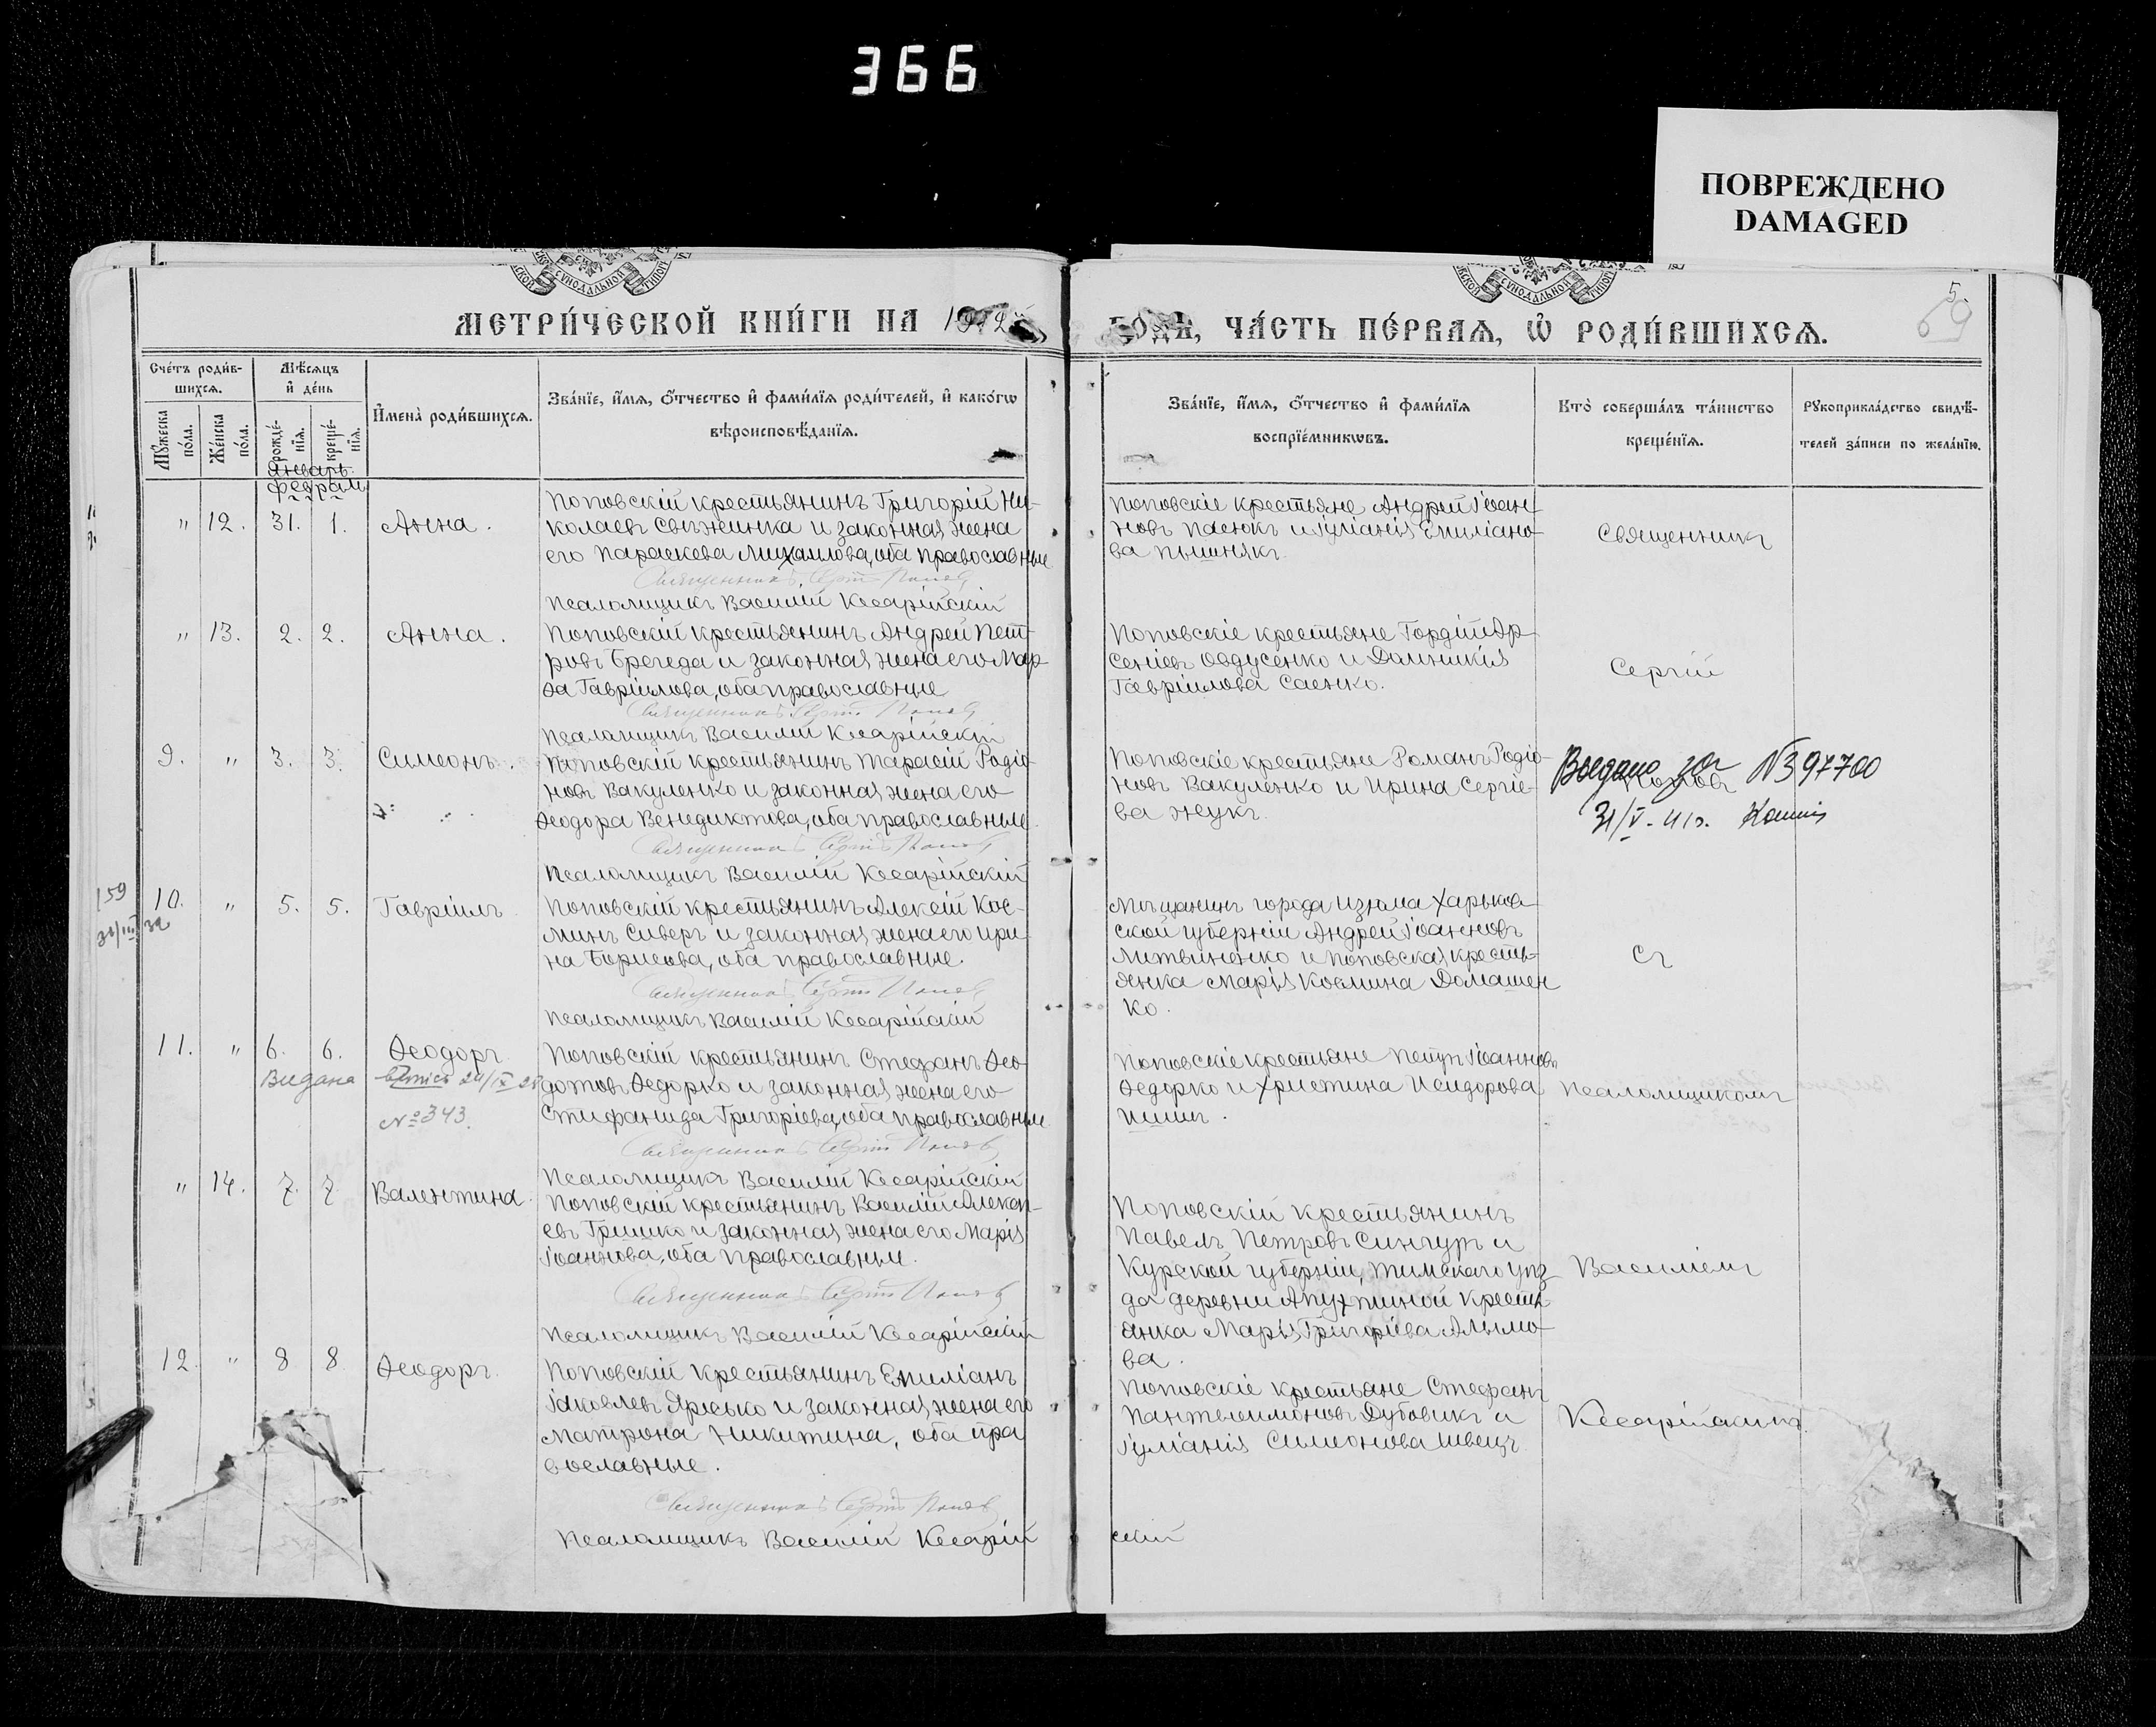 366
ПОВРЕЖДЕНО
DAMAGED
МЕТРИ́ЧЕСКОЙ КНИ́ГИ НА 1912
ГОДЪ, ЧА́СТЬ ПЕ́РВАѦ, Ѡ҆ РОДИ́ВШИХСѦ.
5.
69
Сче́тъ роди́в-
шихсѧ.
Мѣ́сѧцъ
и҆ де́нь
Мꙋ́жеска по́ла.
Же́нска по́ла.
рожде́-нїѧ.
креще́-нїѧ.
И҆мена̀ роди́вшихсѧ.
Зва́нїе, и҆́мѧ, ѻ҆́тчество и҆ фами́лїѧ роди́телей, и҆ како́гѡ
вѣроисповѣ́данїѧ.
Зва́нїе, и҆́мѧ, ѻ҆́тчество и҆ фами́лїѧ
воспрїе́мникѡвъ.
Кто̀ соверша́лъ та́инство
креще́нїѧ.
Рꙋкоприкла́дство свидѣ́-
телей за́писи по жела́нїю.
Январь.
Феврал
" 12. 31. 1. Анна.
Поповскій крестьянинъ Григорій Ни-
колаевъ Свѣжинка и законная жена
его Параскева Михаилова, оба православные
Священникъ Сергій Поповъ
Псаломщикъ Василій Кесарійскій
Поповскіе крестьяне Андрей Іоан-
новъ Пасюкъ и Іуліанія Емиліано-
ва Пышнякъ.
Священникъ
" 13. 2. 2. Анна.
Поповскій крестьянинъ Андрей Пет-
ровъ Брегеда и законная жена его Мар-
ѳа Гавріилова, оба православные
Священникъ Сергій Поповъ
Псаломщикъ Василій Кесарійскій
Поповскіе крестьяне Гордій Ар-
сеніевъ Овдусенко и Домникія
Гавріилова Саенко.
Сергій
9. " 3. 3. Симеонъ.
Поповскій крестьянинъ Тарасій Родіо-
новъ Вакуленко и законная жена его
Ѳеодора Венедиктова, оба православные.
Священникъ Сергій Поповъ
Псаломщикъ Василій Кесарійскій
Поповскіе крестьяне Романъ Родіо-
новъ Вакуленко и Ирина Сергіе-
ва Жукъ.
Поповъ
N397700
31/V-41г.
159
31/III 32
10. " 5. 5. Гавріилъ
Поповскій крестьянинъ Алексій Кос-
минъ Сиверъ и законная жена его Ири-
на Борисова, оба православные.
Священникъ Сергій Поповъ
Псаломщикъ Василій Кесарійскій
Мѣщанинъ города Изюма Харьков-
ской губерніи Андрей Іоанновъ
Литвиненко и поповская кресть-
янка Марія Космина Домашен-
ко.
Съ
11. " 6. 6. Ѳеодоръ
Видана 24/IX 28
№ 343.
Поповскій крестьянинъ Стефанъ Ѳео-
дотовъ Ѳедорко и законная жена его
Стифанида Григоріева, оба православные
Священникъ Сергій Поповъ
Псаломщикъ Василій Кесарійскій
Поповскіе крестьяне Петръ Іоанновъ
Ѳедорко и Христина Исидорова
Шишъ.
Псаломщикомъ
" 14. 7. 7. Валентина
Поповскій крестьянинъ Василій Алексі-
евъ Гришко и законная жена его Марія
Іоаннова, оба православные.
Священникъ Сергій Поповъ
Псаломщикъ Василій Кесарійскій
Поповскій крестьянинъ
Павелъ Петровъ Сингуръ и
Курской губерніи, Тимскаго уѣз-
да деревни Апухтиной кресть-
янка Марія Григоріева Алымо-
ва.
Василіемъ
12. " 8 8 Ѳеодоръ.
Поповскій крестьянинъ Емиліанъ
Іаковлевъ Яресько и законная жена его
Матрона Никитина, оба пра-
вославные.
Священникъ Сергій Поповъ
Псаломщикъ Василій Кесарій
Поповскіе крестьяне Стефанъ
Пантелеимоновъ Дубовикъ и
Іуліанія Симеонова Швецъ
Кесарійскимъ.
скій